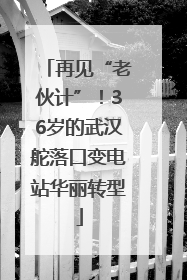 「再见“老
伙计”！3
6岁的武汉
舵落口变电
站华丽转型
」